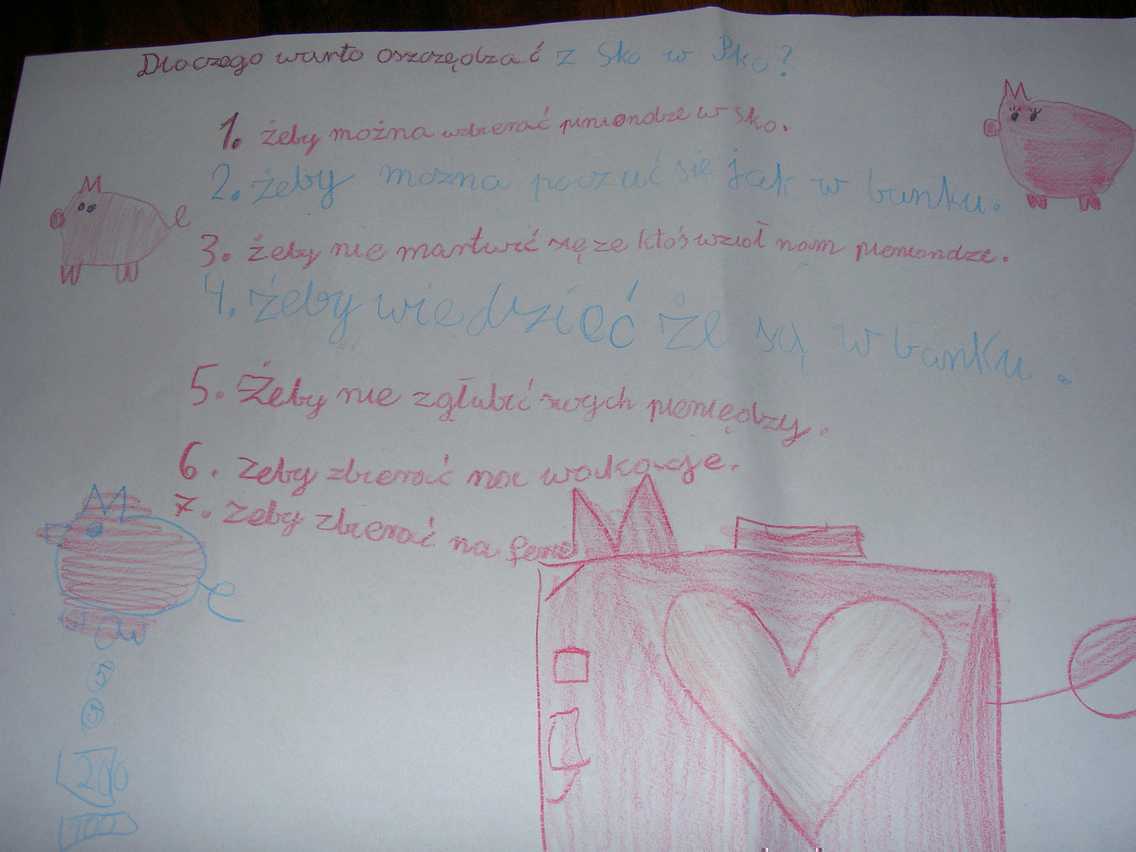 Dlaczego warto oszczędzać z Sko w Pko?
1. żeby można wzbierać piniondze w sko.
2. żeby można poczuć się jak w banku.
3. żeby nie martwić się ze ktoś wzioł nam pieniondze.
4. żeby wiedzieć że są w banku.
5. Żeby nie zgłubić swoych pieniędzy.
6. Zeby zbierać na wakacje.
7. Zeby zbierać na ferie
5
200
100